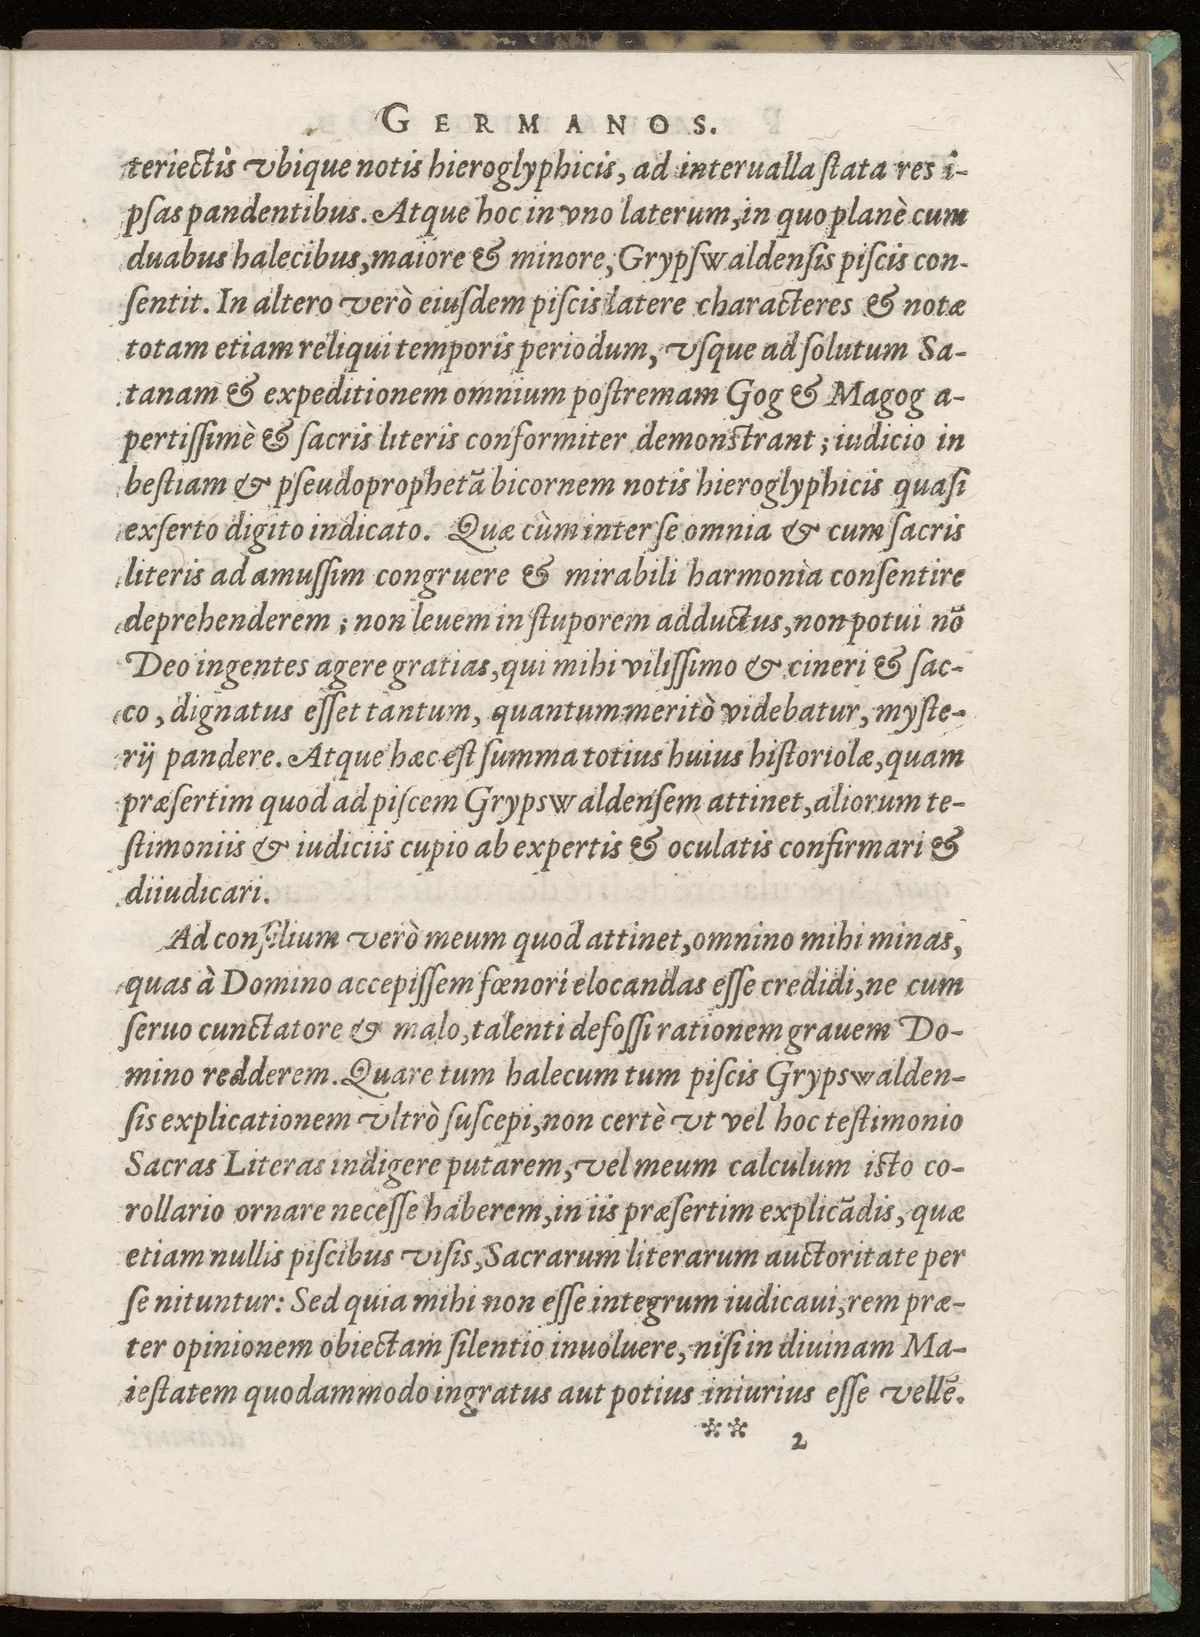 GERMANOS.
teriectis vbique notis hieroglyphicis, ad interualla ſtata res i-
pſas pandentibus. Atque hoc in vno laterum, in quo planè cum
duabus halecibus, maiore & minore, Grypſwaldenſis piſcis con-
ſentit. In altero verò eiuſdem piſcis latere characteres & notæ
totam etiam reliqui temporis periodum, vſque ad ſolutum Sa-
tanam & expeditionem omnium poſtremam Gog & Magog a-
pertiſſimè & ſacris literis conformiter demonſtrant; iudicio in
beſtiam & pſeudoprophetã bicornem notis hieroglyphicis quaſi
exſerto digito indicato. Quæ cùm inter ſe omnia & cum ſacris
literis ad amuſſim congruere & mirabili harmonia conſentire
deprehenderem; non leuem in ſtuporem adductus, non potui nõ
Deo ingentes agere gratias, qui mihi viliſſimo & cineri & ſac-
co, dignatus eſſet tantum, quantum meritò videbatur, myſte-
rij pandere. Atque hæc eſt ſumma totius huius hiſtoriolæ, quam
præſertim quod ad piſcem Grypswaldenſem attinet, aliorum te-
ſtimoniis & iudiciis cupio ab expertis & oculatis confirmari &
diiudicari.
Ad conſilium verò meum quod attinet, omnino mihi minas,
quas à Domino accepiſſem fœnori elocandas eſſe credidi, ne cum
ſeruo cunctatore & malo, talenti defoſſi rationem grauem Do-
mino redderem. Quare tum halecum tum piſcis Grypswalden-
ſis explicationem vltrò ſuſcepi, non certè vt vel hoc teſtimonio
Sacras Literas indigere putarem, vel meum calculum iſto co-
rollario ornare neceſſe haberem, in iis præſertim explicãdis, quæ
etiam nullis piſcibus viſis, Sacrarum literarum auctoritate per
ſe nituntur: Sed quia mihi non eſſe integrum iudicaui, rem præ-
ter opinionem obiectam ſilentio inuoluere, niſi in diuinam Ma-
ieſtatem quodammodo ingratus aut potius iniurius eſſe vellẽ.
** 2